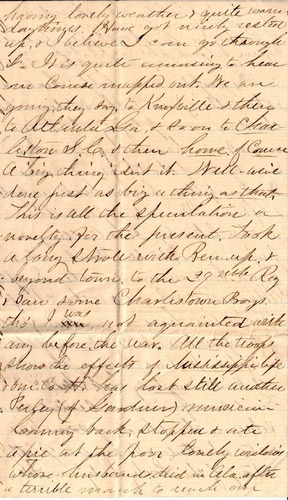 having lovely weather & quite warm
daytimes. Have got nicely rested
up, & I believe I can go through
It is quite amusing to hear
our Course mapped out. We are
going, they say, to Knoxville & then
to Atlanta Ga & so on to Char
leston S.C. & then home of Course
A big thing isn't it. Well we've
done just as big a thing as that.
This is all the speculation or
novelty, for the present. Took
a long stroll with Ben, up, &
beyond town, to the 29 Reg
Saw some Charlestown Boys
tho I was not aquainted with
any before the war. All the troops
show the effects of Mississippi life
our Co. H. has lost still another
(of Gardner) musician
Coming back, stopped & ate
a pie at the poor lonely widows
whose husband died in Ala. after
a terrible march to reach our